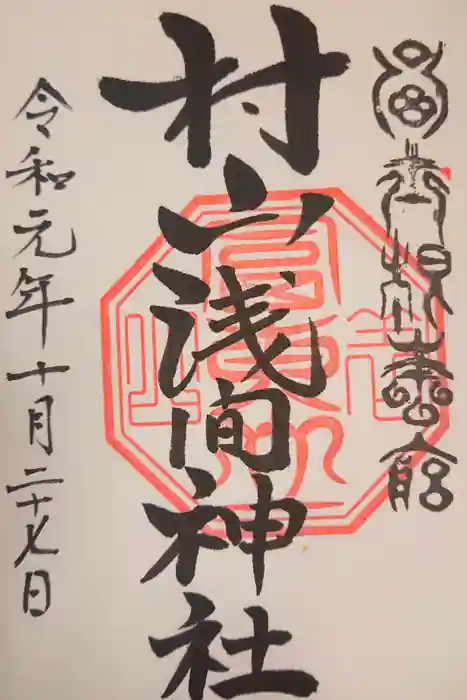 村山浅間神社
令和元年十月二十七日